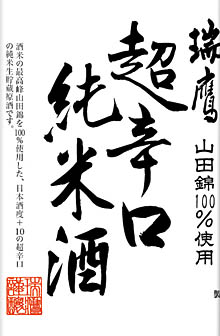 瑞鷹
山田錦100%使用
超辛口
純米酒
酒米の最高峰山田錦を100%使用した、日本酒度+10の超辛口
の純米生貯蔵原酒です。
製